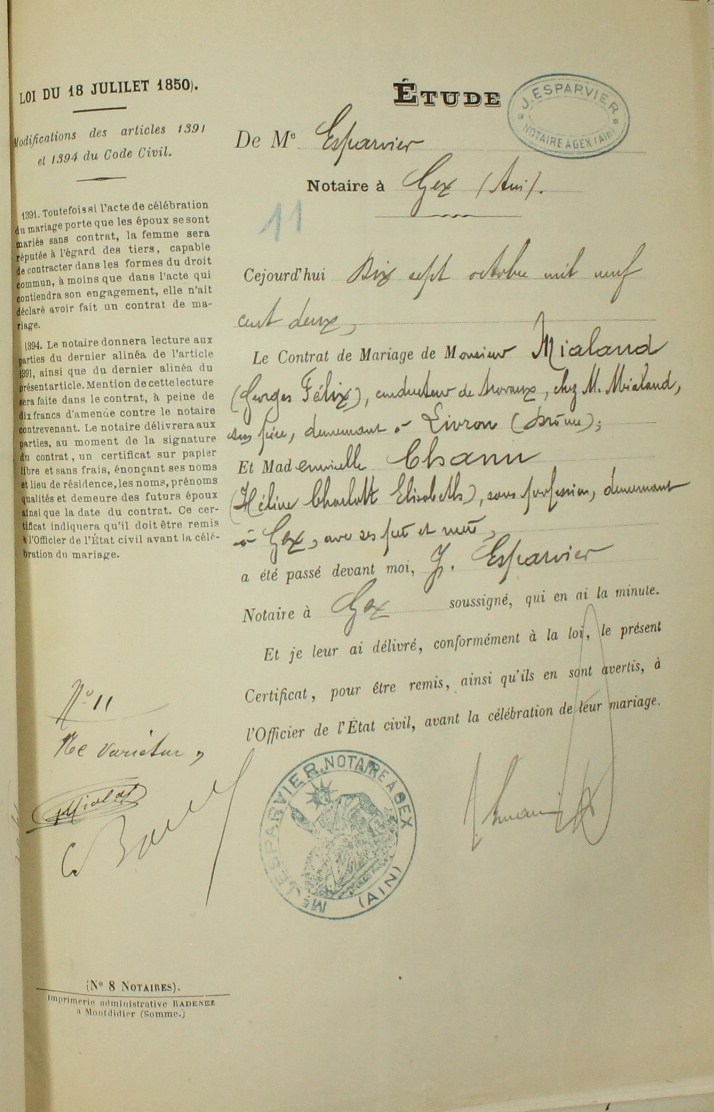 LOI DU 18 JULILET 1850).
Modifications des articles 1391
et 1394 du Code Civil.
1391. Toutefois si l'acte de célébration
du mariage porte que les époux se sont
mariés sans contrat, la femme sera
réputée à l'égard des tiers, capable
de contracter dans les formes du droit
commun, à moins que dans l'acte qui
contiendra son engagement, elle n'ait
déclaré avoir fait un contrat de ma-
riage.
1394. Le notaire donnera lecture aux
parties du dernier alinéa de l'article
1391, ainsi que du dernier alinéa du
présent article. Mention de cette lecture
sera faite dans le contrat, à peine de
dix francs d'amende contre le notaire
contrevenant. Le notaire délivrera aux
parties, au moment de la signature
du contrat, un certificat sur papier
libre et sans frais, énonçant ses noms
et lieu de résidence, les noms, prénoms
qualités et demeure des futurs époux
ainsi que la date du contrat. Ce cer-
tificat indiquera qu'il doit être remis
à l'Officier de l'État civil avant la célé-
bration du mariage.
N° 11
Ne varietur,
(N° 8 NOTAIRES).
Imprimerie administrative RADENEZ
à Montdidier (Somme.)
ÉTUDE
J. ESPARVIER
NOTAIRE A GEX (AIN)
De Me Esparvier
Notaire à Gex (Ain).
11
Cejourd'hui Dix sept octobre mil neuf
cent deux,
Le Contrat de Mariage de Monsieur Mialand
(Georges Félix), conducteur de travaux, chez M. Mialand,
son père, demeurant à Livron (Drôme);
Et Mademoiselle Chanu
(Hélène Charlotte Elisabeth), sans profession, demeurant
à Gex, avec ses père et mère,
a été passé devant moi, J. Esparvier
Notaire à Gex soussigné, qui en ai la minute.
Et je leur ai délivré, conformément à la loi, le présent
Certificat, pour être remis, ainsi qu'ils en sont avertis, à
l'Officier de l'État civil, avant la célébration de leur mariage.
Me J. ESPARVIER, NOTAIRE A GEX
(AIN)